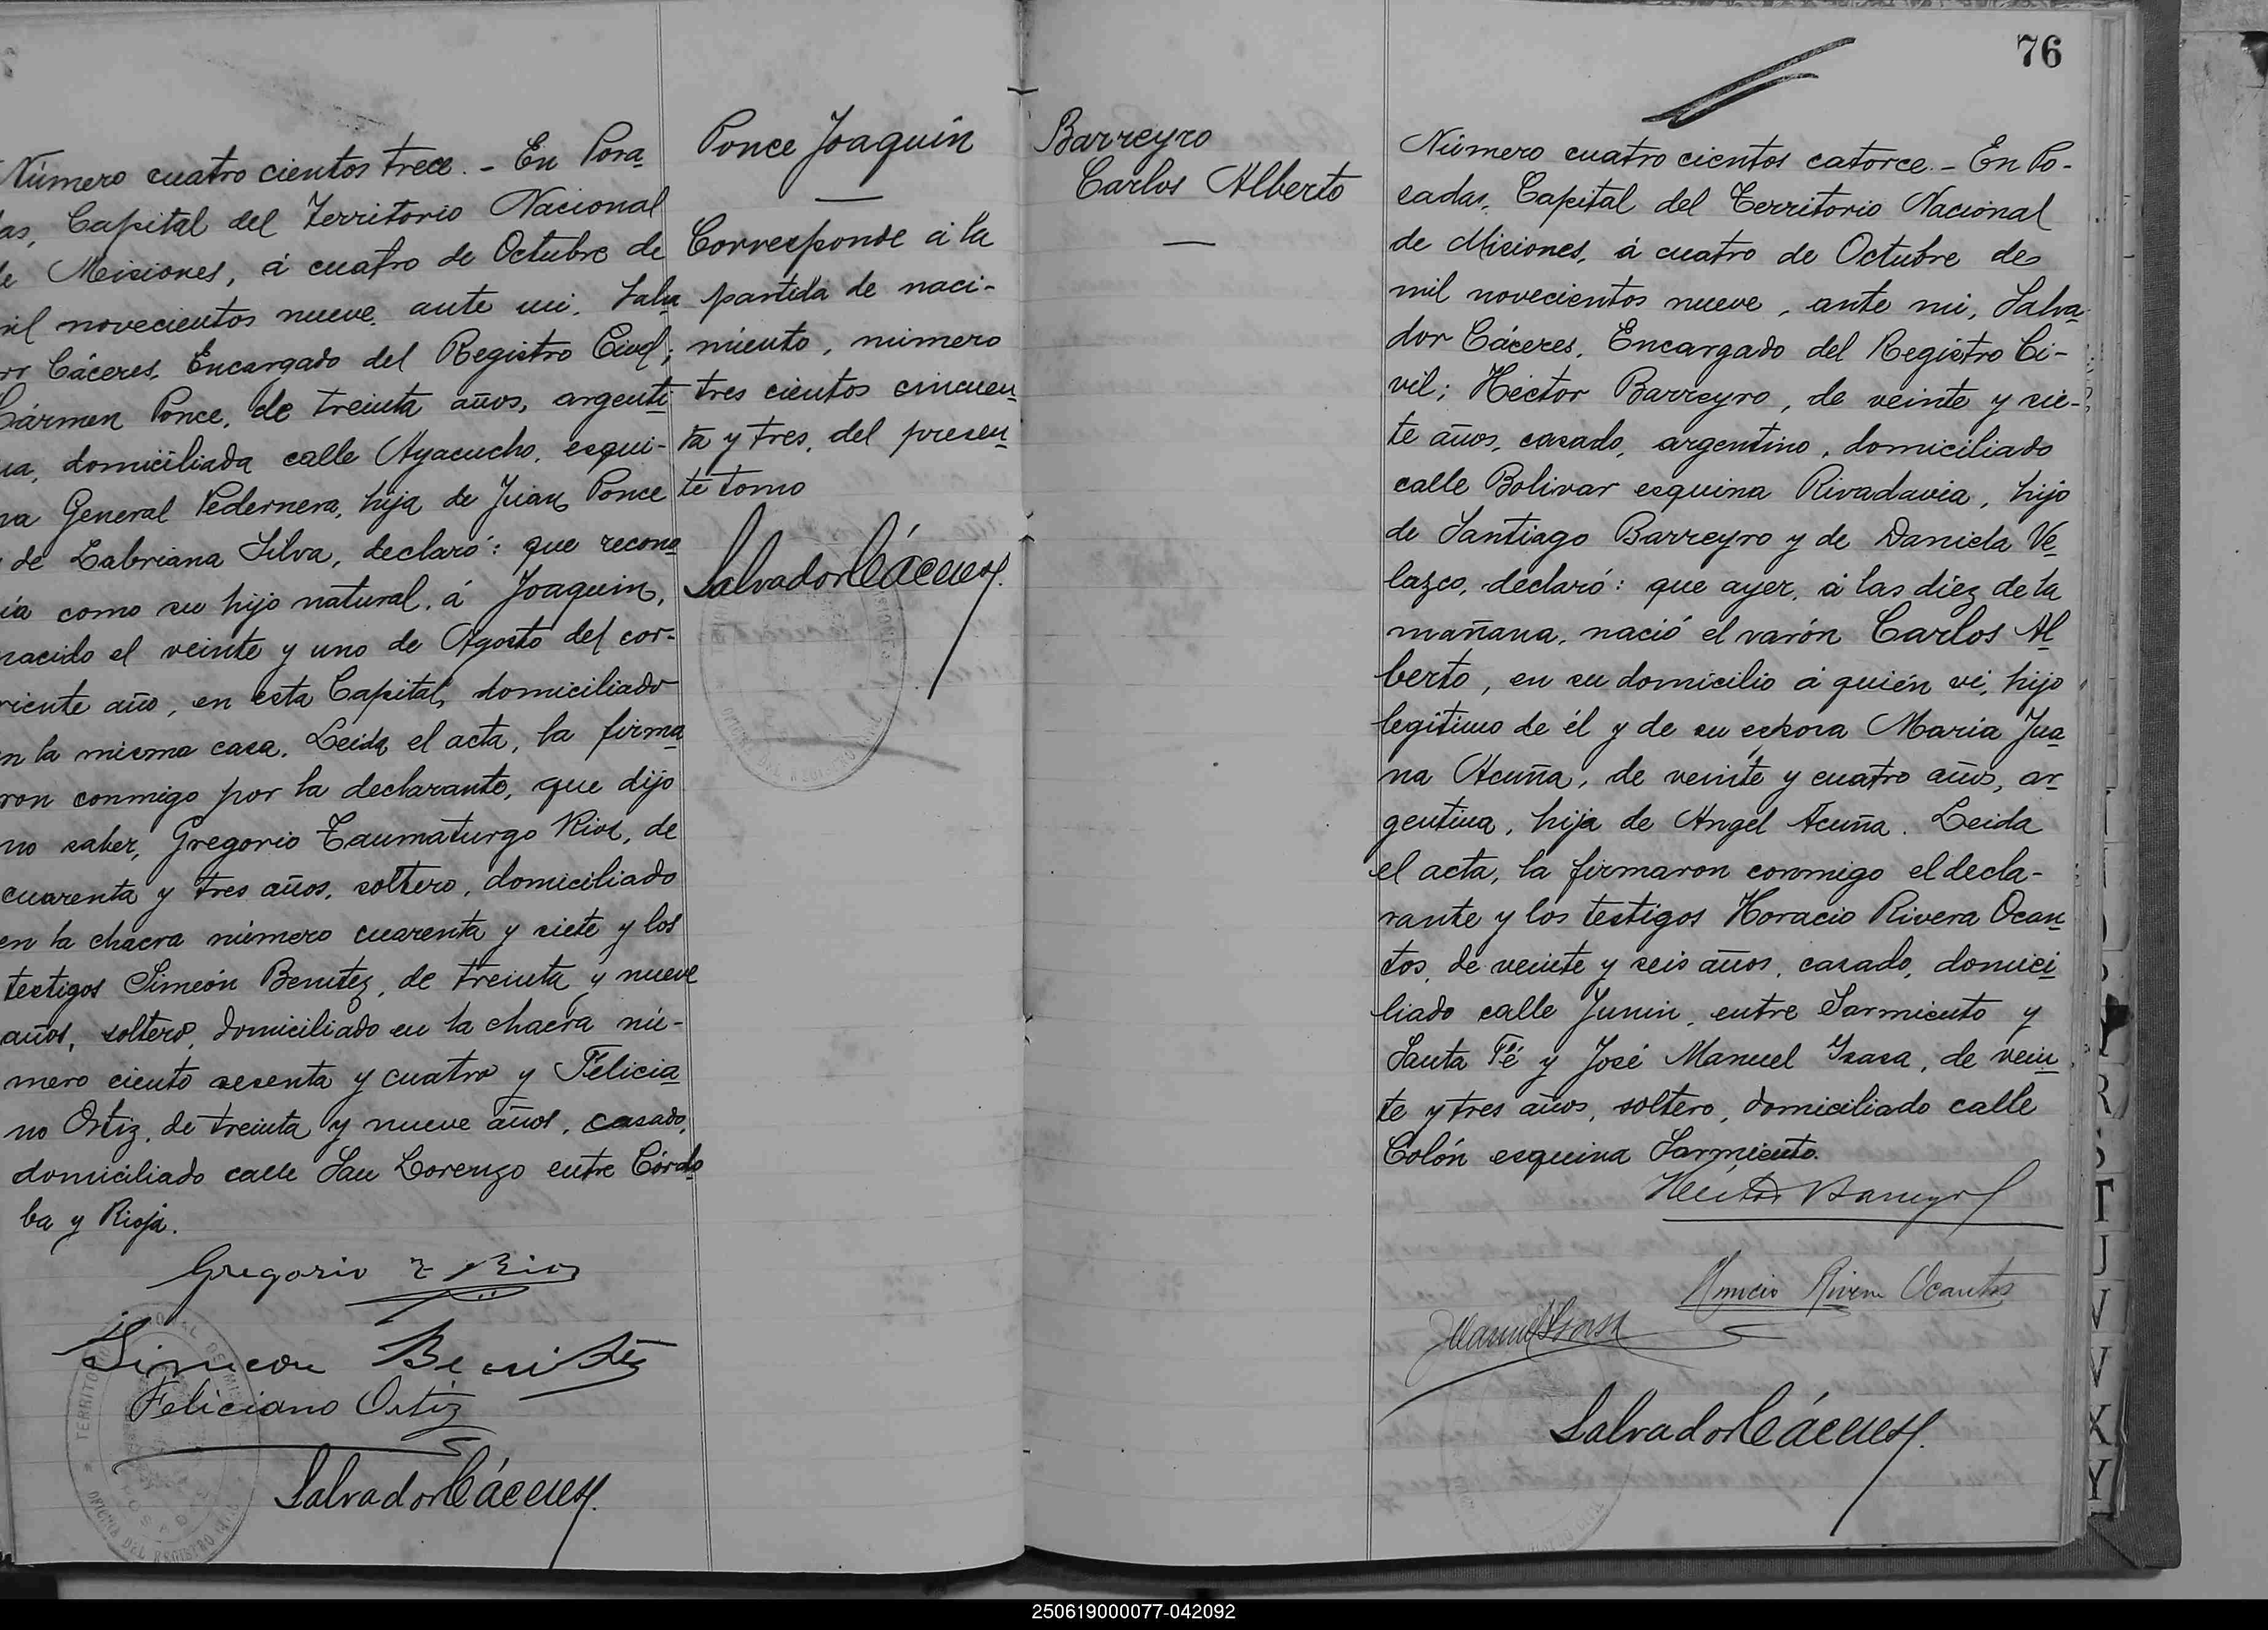 Número cuatro cientos trece. - En Posa
as, Capital del Territorio Nacional
e Misiones, á cuatro de Octubre de
il novecientos nueve, ante mi, Salva
or Cáceres, Encargado del Registro Civil;
Cármen Ponce, de treinta años, argenti
na, domiciliada calle Ayacucho, esqui-
na General Pedernera, hija de Juan Ponce
de Labriana Silva, declaró: que recono
ia como su hijo natural, á Joaquin,
nacido el veinte y uno de Agosto del cor-
riente año, en esta Capital, domiciliado
n la misma casa. Leida el acta, la firma
ron conmigo por la declarante, que dijo
no saber, Gregorio Taumaturgo Rios, de
cuarenta y tres años, soltero, domiciliado
en la chacra número cuarenta y siete y los
testigos Simeón Benitez, de treinta y nueve
años, soltero, domiciliado en la chacra nú-
mero ciento sesenta y cuatro y Felicia
no Ortiz, de treinta y nueve años, casado,
domiciliado calle San Lorenzo entre Córdo
ba y Rioja.
Gregorio T Rios
Simeon Benitez
Feliciano Ortiz
Salvador Cáceres
Ponce Joaquin
Corresponde á la
partida de naci-
miento, número
tres cientos cincuen
ta y tres, del presen
te tomo
Salvador Cáceres
76
Barreyro
Carlos Alberto
Número cuatro cientos catorce. - En Po-
sadas, Capital del Territorio Nacional
de Misiones, á cuatro de Octubre de
mil novecientos nueve, ante mi, Salva
dor Cáceres, Encargado del Registro Ci-
vil; Héctor Barreyro, de veinte y sie-
te años, casado, argentino, domiciliado
calle Bolivar esquina Rivadavia, hijo
de Santiago Barreyro y de Daniela Ve
lazco, declaró: que ayer, á las diez de la
mañana, nació el varón Carlos Al
berto, en su domicilio á quién vi, hijo
legitimo de él y de su esposa Maria Jua
na Acuña, de veinte y cuatro años, ar
gentina, hija de Angel Acuña. Leida
el acta, la firmaron conmigo el decla-
rante y los testigos Horacio Rivera Ocan
tos, de veinte y seis años, casado, domici
liado calle Junin, entre Sarmiento y
Santa Fé y José Manuel Ysasa, de vein
te y tres años, soltero, domiciliado calle
Colón esquina Sarmiento.
Héctor Barreyro
Horacio Rivera Ocantos
JManuel Ysasa
Salvador Cáceres
T
R
S
T
U
V
V
X
Y
250619000077-042092